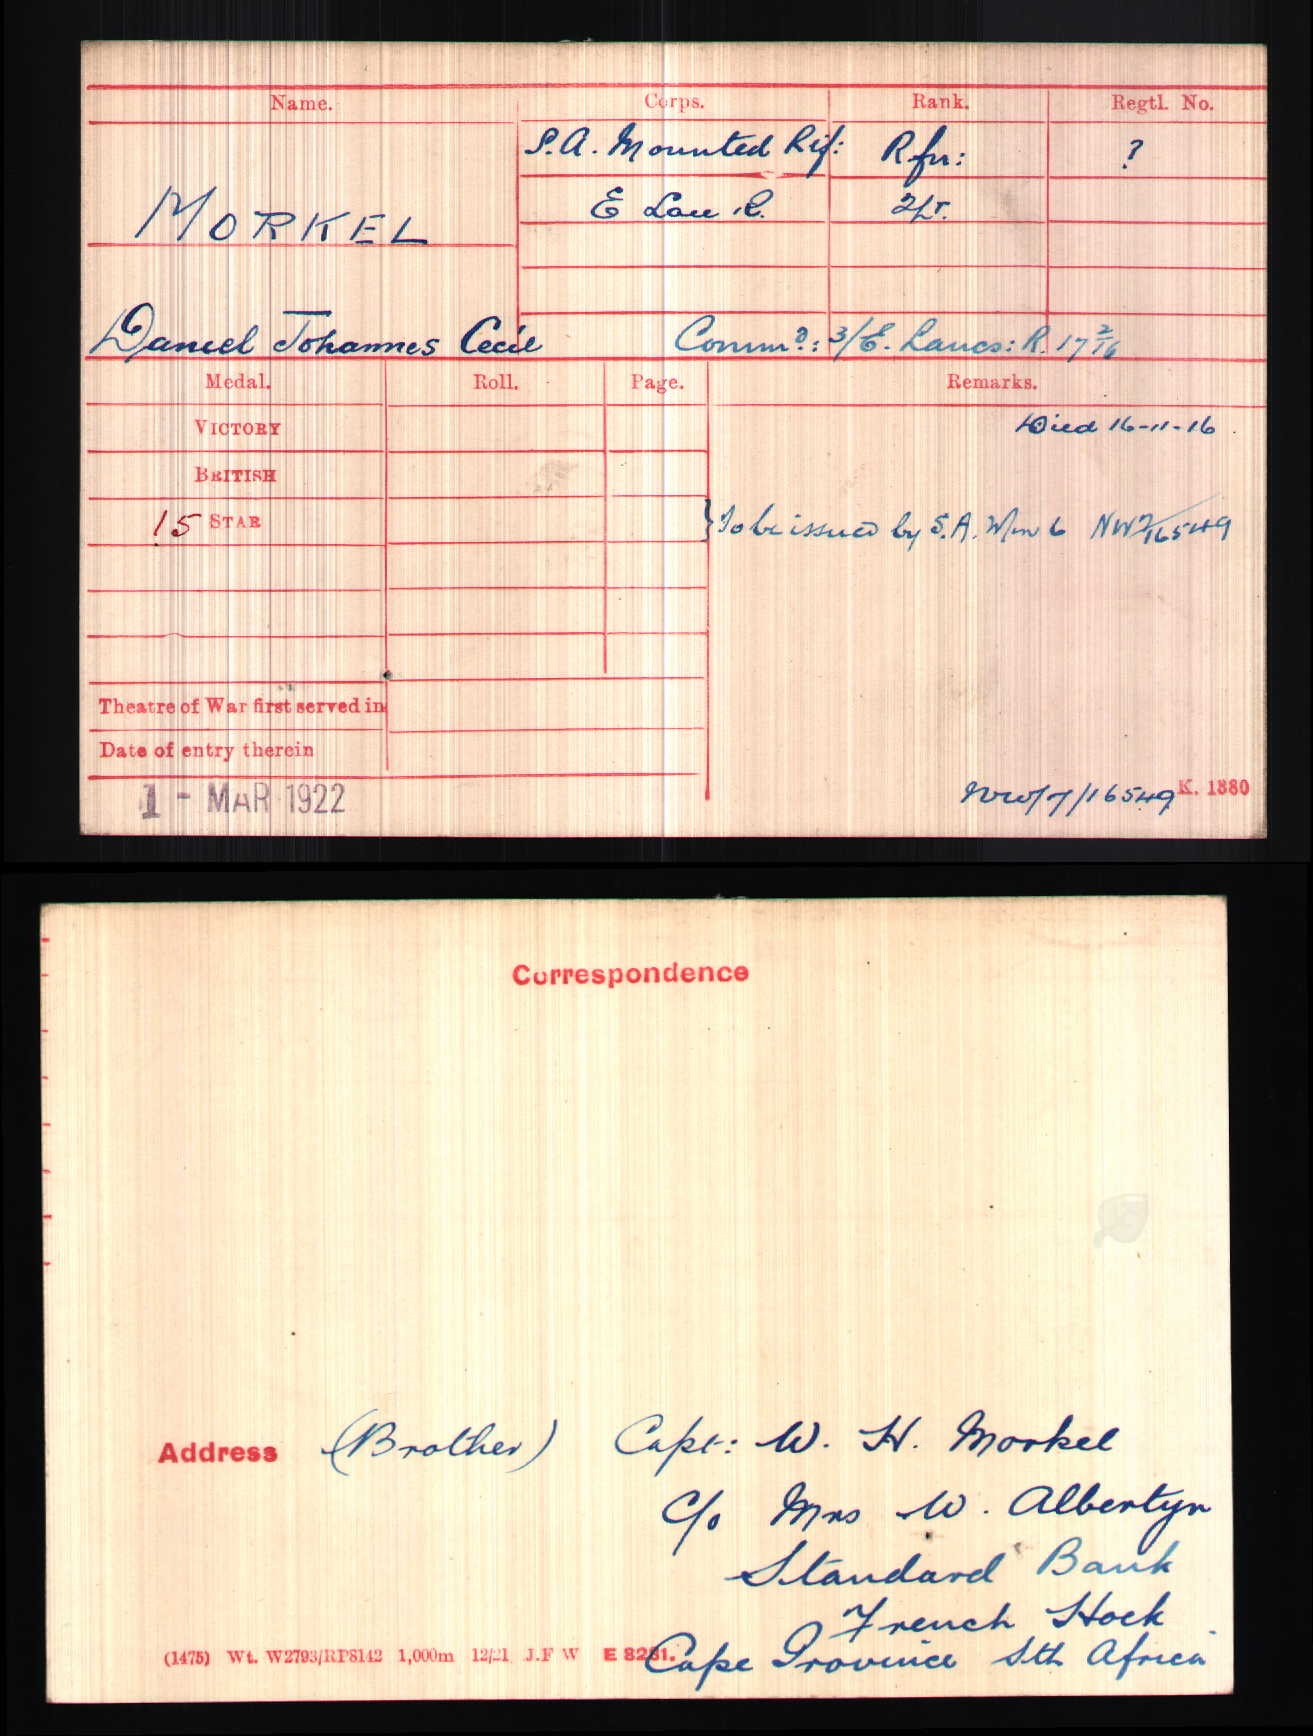 Name. Corps. Rank. Regtl. No.
S.A. Mounted Rif: Rfn: ?
MORKEL
E Lan R. 2/Lt.
Daniel Johannes Cecil Commd.: 3/E. Lancs: R. 17 2/16
Medal. Roll. Page. Remarks.
VICTORY Died 16-11-16.
BRITISH
15 STAR } To be issued by S.A. NW7/16549
Theatre of War first served in
Date of entry therein
1 - MAR 1922
NW/7/16549 K. 1380
Correspondence
Address (Brother) Capt: W. H. Morkel
C/o Mrs W. Albertyn
Standard Bank
French Hoek
(1475) Wt. W2793/RP8142 1,000m 12/21 J.F W E 8281. Cape Province Sth Africa